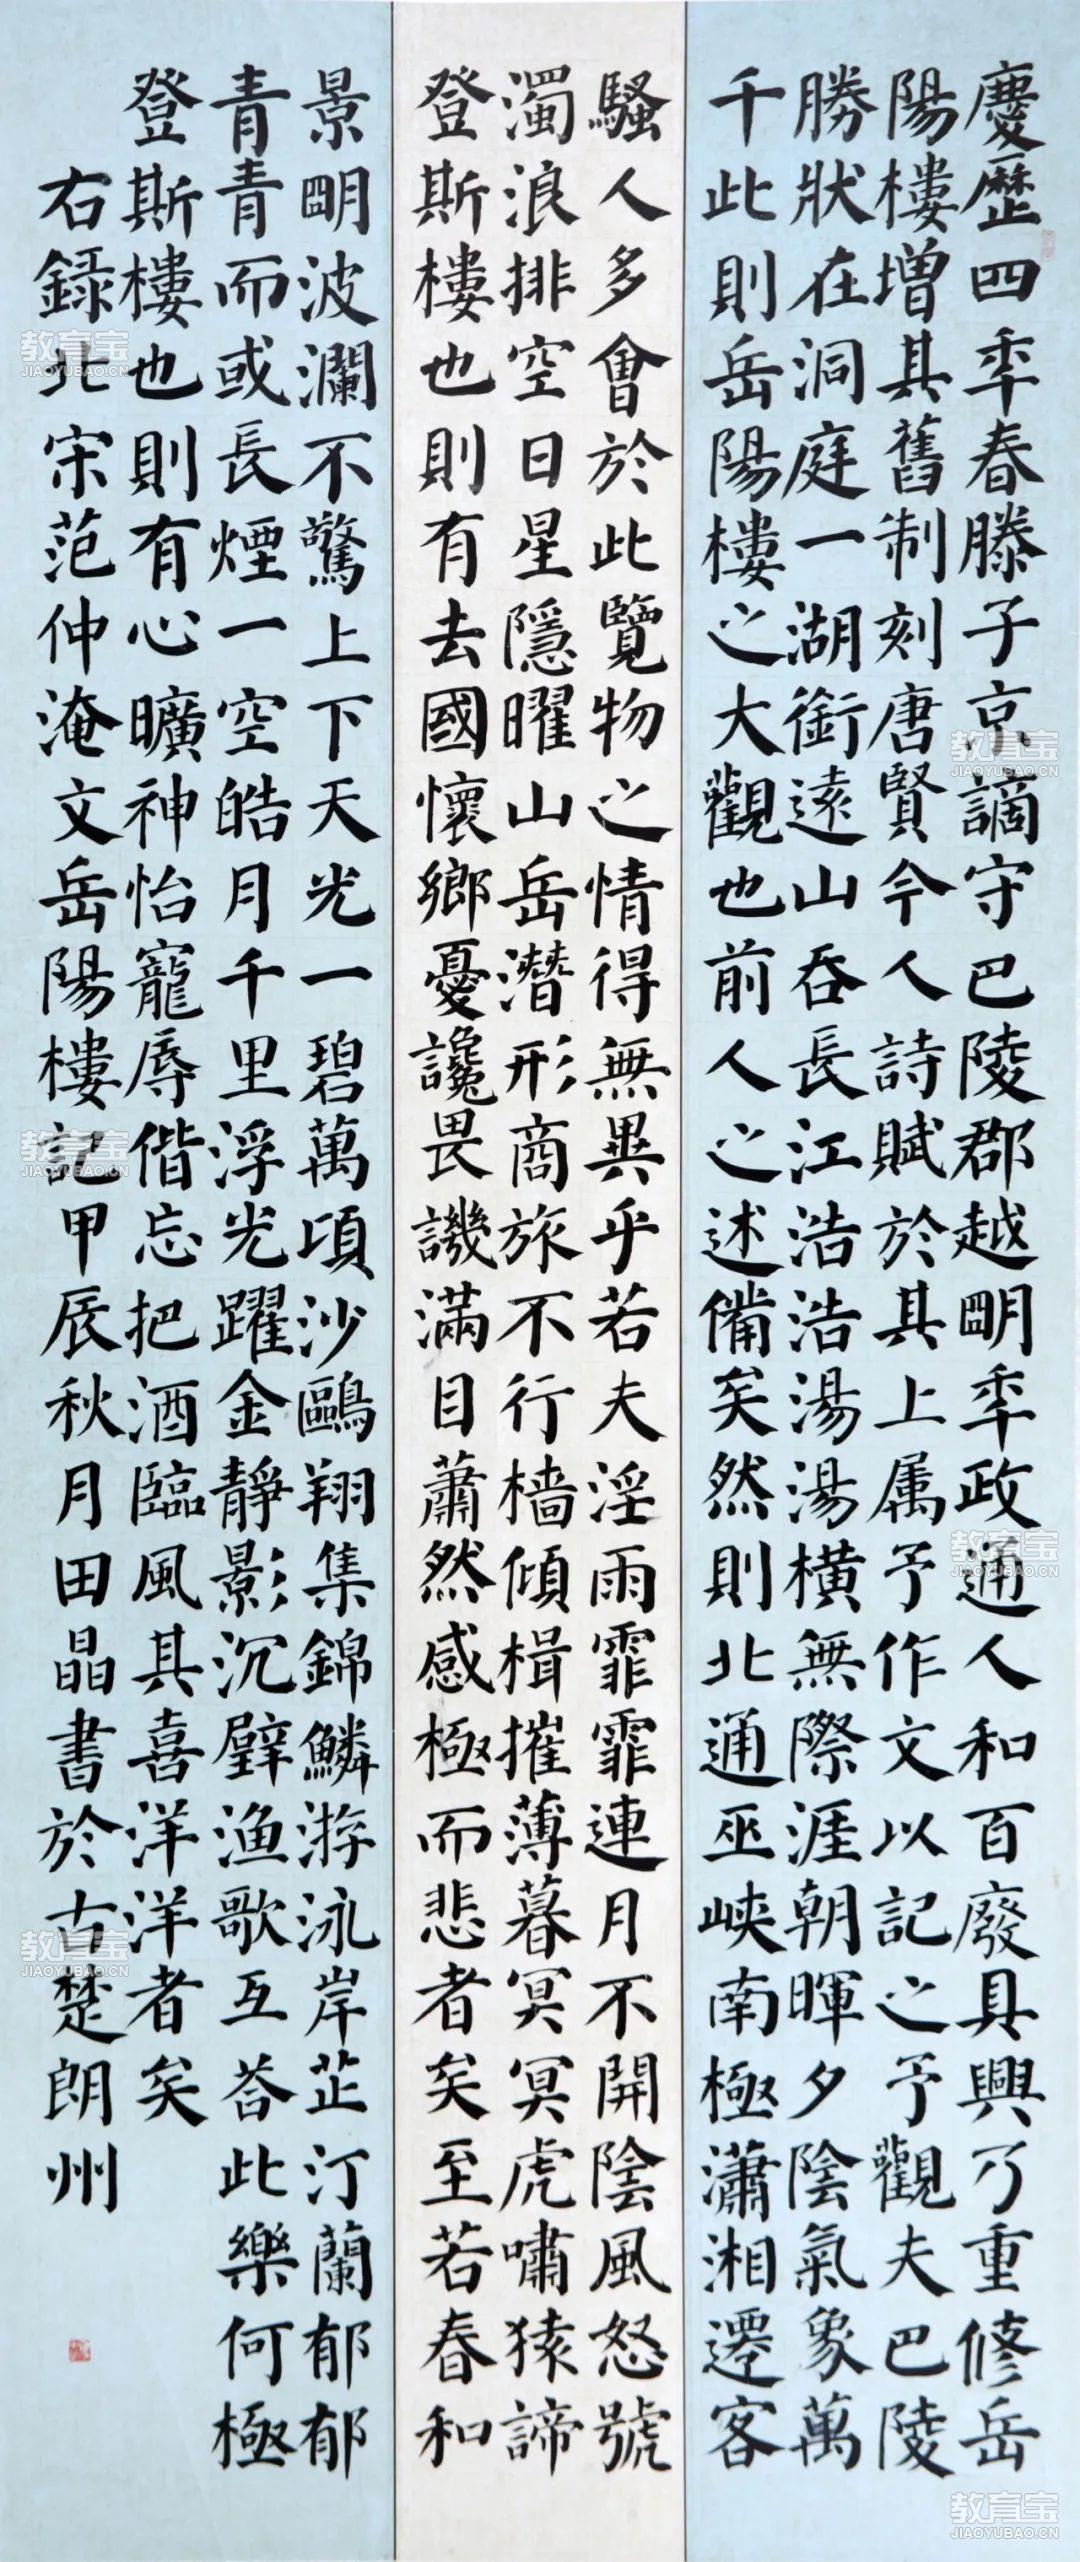 慶歷四年春滕子京謫守巴陵郡越明年政通人和百廢具興乃重修岳
陽樓增其舊制刻唐賢今人詩賦於其上属予作文以記之予觀夫巴陵
勝狀在洞庭一湖銜遠山吞長江浩浩湯湯橫無際涯朝暉夕陰氣象萬
千此則岳陽樓之大觀也前人之述備矣然則北通巫峽南極瀟湘遷客
騷人多會於此覽物之情得無異乎若夫淫雨霏霏連月不開陰風怒號
濁浪排空日星隱曜山岳潛形商旅不行檣傾楫摧薄暮冥冥虎嘯猿諦
登斯樓也則有去國懷鄉憂讒畏譏滿目蕭然感極而悲者矣至若春和
景明波瀾不驚上下天光一碧萬頃沙鷗翔集錦鱗游泳岸芷汀蘭郁郁
青青而或長煙一空皓月千里浮光躍金靜影沉璧渔歌互荅此樂何極
登斯樓也則有心曠神怡寵辱偕忘把酒臨風其喜洋洋者矣
右錄北宋范仲淹文岳陽樓記甲辰秋月田晶書於古楚朗州
教育宝
JIAOYUBAO.CN
教育宝
JIAOYUBAO.CN
教育宝
JIAOYUBAO.CN
教育宝
JIAOYUBAO.CN
教育宝
JIAOYUBAO.CN
教育宝
JIAOYUBAO.CN